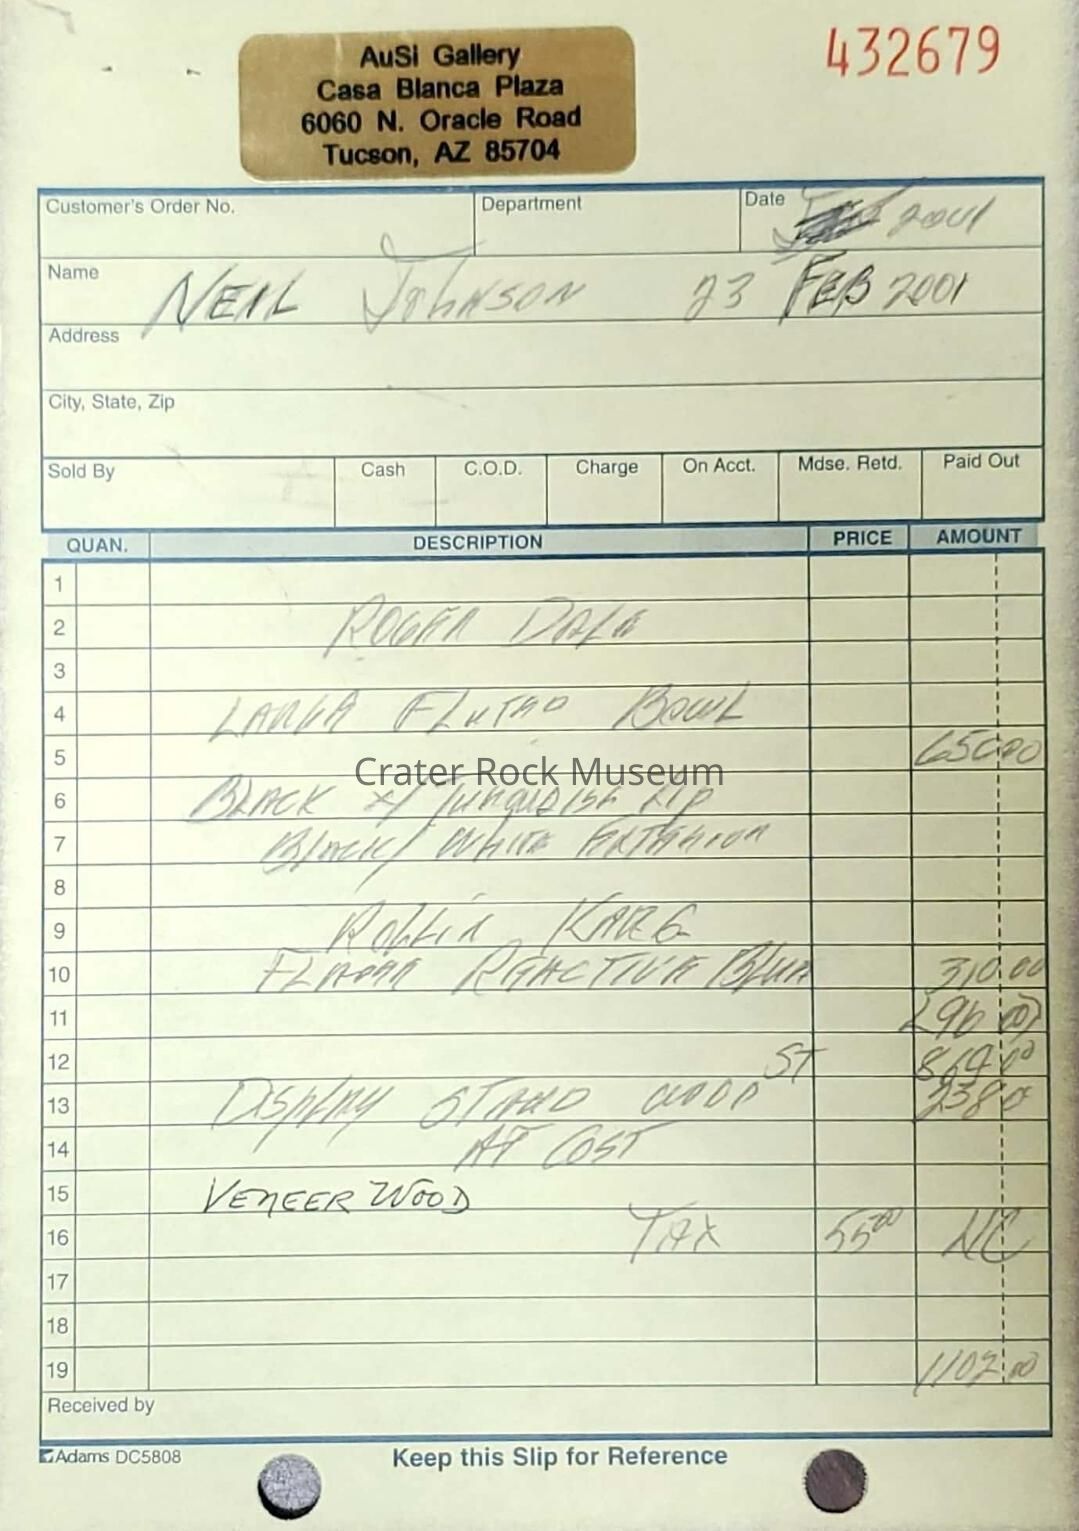 432679
AuSi Gallery
Casa Blanca Plaza
6060 N. Oracle Road
Tucson, AZ 85704
Customer's Order No. Department Date 2001
Name NEIL JOHNSON 23 FEB 2001
Address
City, State, Zip
Sold By Cash C.O.D. Charge On Acct. Mdse. Retd. Paid Out
QUAN. DESCRIPTION PRICE AMOUNT
1
2 ROGER
3
4 LARGE FLUTED BOWL
5 650.00
Crater Rock Museum
6 BLACK W/ TURQUOISE LIP
7 BLACK/ WHITE EXTERIOR
8
9 ROLLIN KARG
10 REACTIVE BLUE 310.00
11 <96.00>
12 ST 864.00
13 DISPLAY STAND WOOD 238.0
14 AT COST
15 VENEER WOOD
16 TAX 55.00 NC
17
18
19 1102.00
Received by
Adams DC5808 Keep this Slip for Reference